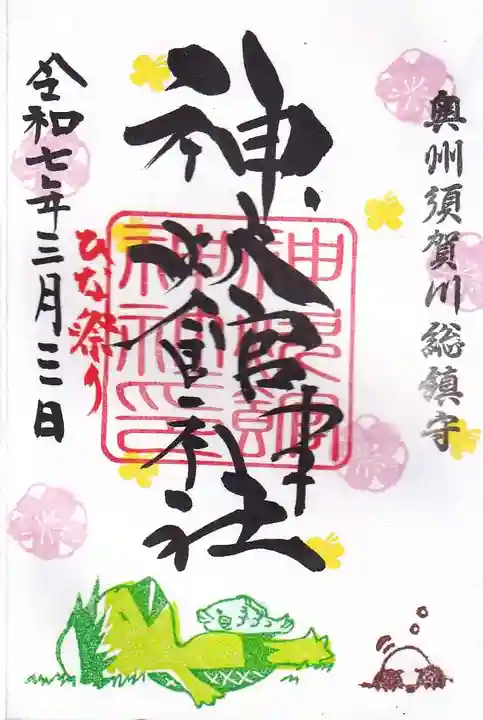 奥州須賀川総鎮守
神炊館神社
神炊館
神社印
令和七年三月三日
ひな祭り